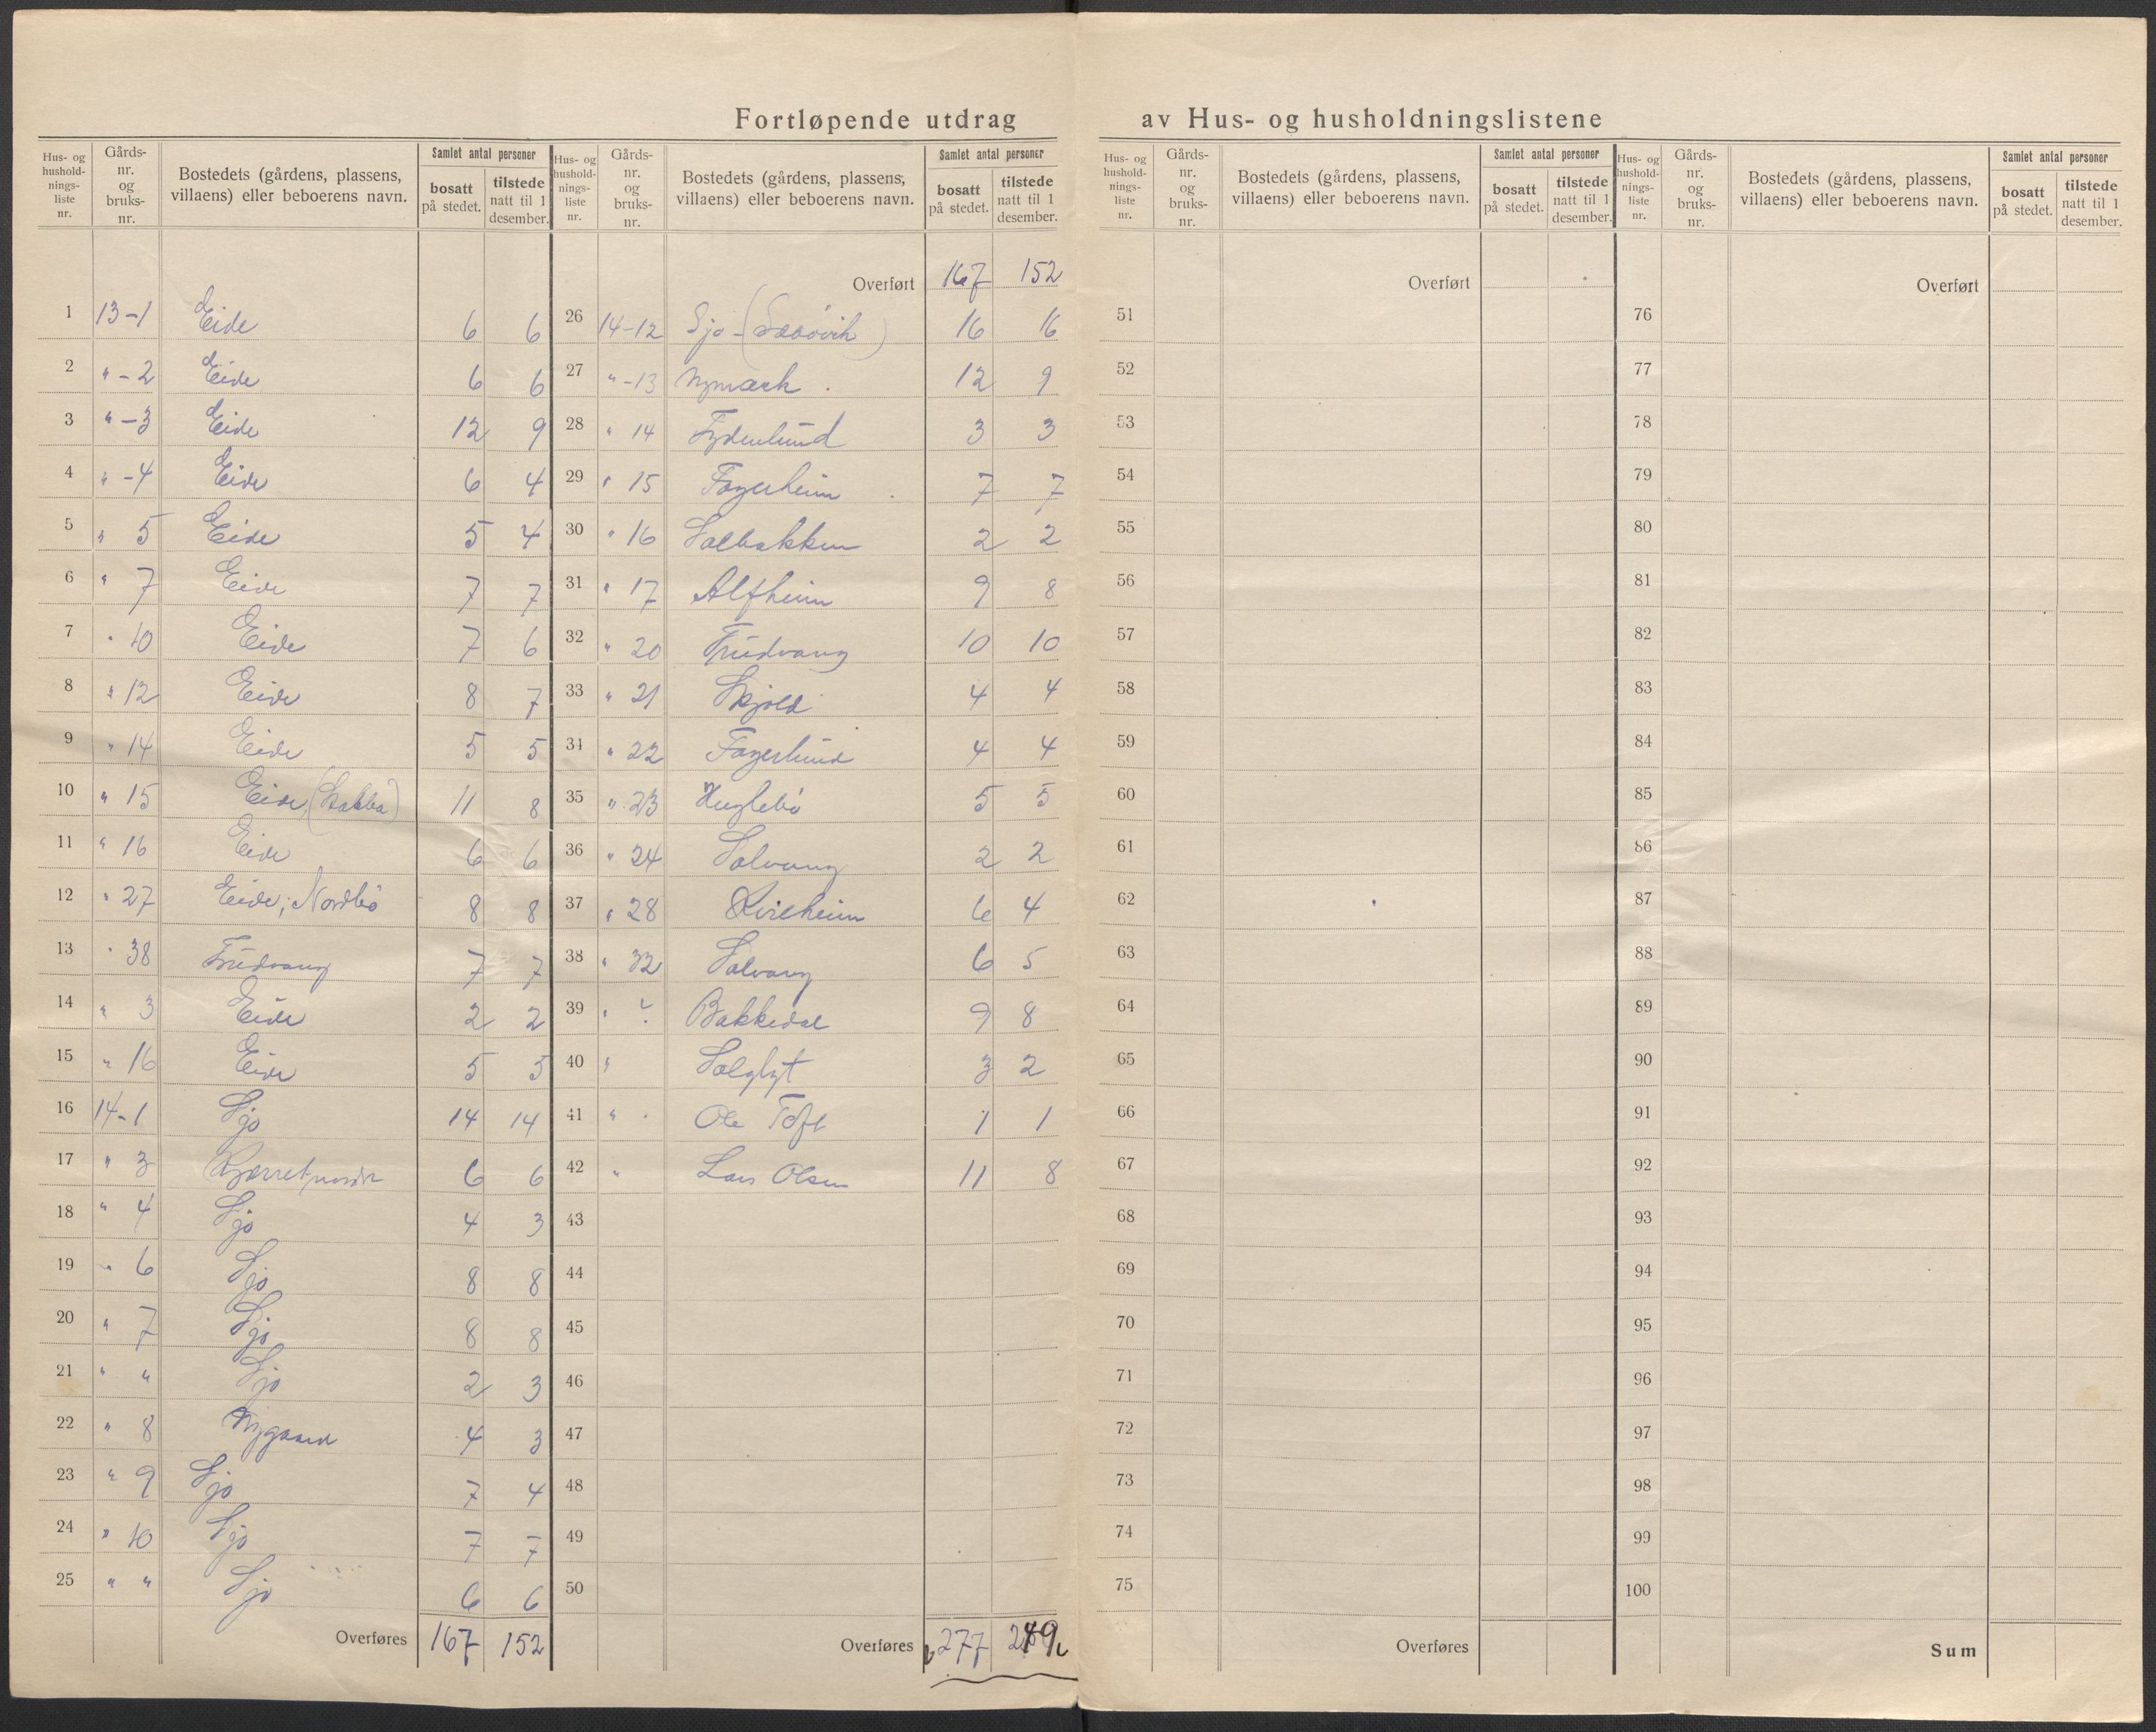 Fortløpende utdrag av Hus- og husholdningslistene
Hus- og hushold-nings-liste nr. | Gårds-nr. og bruks-nr. | Bostedets (gårdens, plassens, villaens) eller beboerens navn. | Samlet antal personer | bosatt på stedet. | tilstede natt til 1 desember.
1 13-1 Eide 6 6
2 " - 2 Eide 6 6
3 " - 3 Eide 12 9
4 " - 4 Eide 6 4
5 " 5 Eide 5 4
6 " 7 Eide 7 7
7 " 10 Eide 7 6
8 " 12 Eide 8 7
9 " 14 Eide 5 5
10 " 15 Eide 11 8
11 " 16 Eide 6 6
12 " 27 Eide, Nordbö 8 8
13 " 38 Trudvang 7 7
14 " 3 Eide 2 2
15 " 16 Eide 5 5
16 14-1 Sjo 14 14
17 " 3 6 6
18 " 4 Sjo 4 3
19 " 6 Sjo 8 8
20 " 7 Sjo 8 8
21 " " Sjo 2 3
22 " 8 Nygaard 4 3
23 " 9 Sjo 7 4
24 " 10 Sjo 7 7
25 " " Sjo 6 6
Overføres 167 152
Hus- og hushold-nings-liste nr. | Gårds-nr. og bruks-nr. | Bostedets (gårdens, plassens, villaens) eller beboerens navn. | Samlet antal personer | bosatt på stedet. | tilstede natt til 1 desember.
Overført 167 152
26 14-12 Sjo 16 16
27 " -13 Nymark 12 9
28 " 14 Frydenlund 3 3
29 " 15 Fagerheim 7 7
30 " 16 Solbakken 2 2
31 " 17 Alfheim 9 8
32 " 20 Trudvang 10 10
33 " 21 Skjold 4 4
34 " 22 Fagerlund 4 4
35 " 23 Huglebö 5 5
36 " 24 Solvang 2 2
37 " 28 6 4
38 " 32 Solvang 6 5
39 " ? Bakkedal 9 8
40 " Solglyt 3 2
41 " Ole Toft 1 1
42 " Lars Olsen 11 8
43
44
45
46
47
48
49
50
Overføres 277 249
Hus- og hushold-nings-liste nr. | Gårds-nr. og bruks-nr. | Bostedets (gårdens, plassens, villaens) eller beboerens navn. | Samlet antal personer | bosatt på stedet. | tilstede natt til 1 desember.
Overført
51
52
53
54
55
56
57
58
59
60
61
62
63
64
65
66
67
68
69
70
71
72
73
74
75
Overføres
Hus- og hushold-nings-liste nr. | Gårds-nr. og bruks-nr. | Bostedets (gårdens, plassens, villaens) eller beboerens navn. | Samlet antal personer | bosatt på stedet. | tilstede natt til 1 desember.
Overført
76
77
78
79
80
81
82
83
84
85
86
87
88
89
90
91
92
93
94
95
96
97
98
99
100
Sum